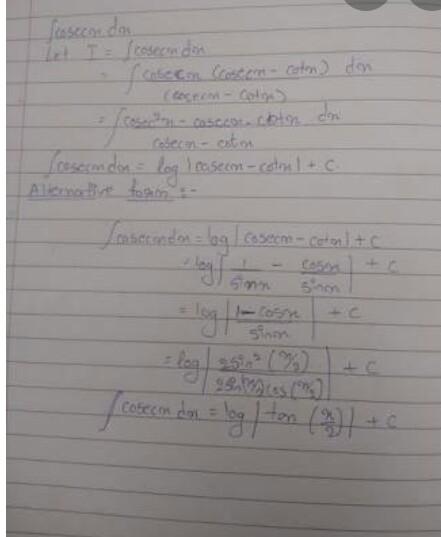 ∫cosecx dx
Let I = ∫cosecx dx
= ∫ cosecx (cosecx - cotx) dx
(cosecx - cotx)
= ∫ cosec²x - cosecx . cotx dx
cosecx - cotx
∫cosecx dx = log |cosecx - cotx| + c.
Alternative form :-
∫cosecx dx = log | cosecx - cotx | + c
= log | 1/sinx - cosx/sinx | + c
= log | 1 - cosx / sinx | + c
= log | 2sin² (x/2) / 2sin(x/2) cos (x/2) | + c
∫ cosecx dx = log | tan (x/2) | + c